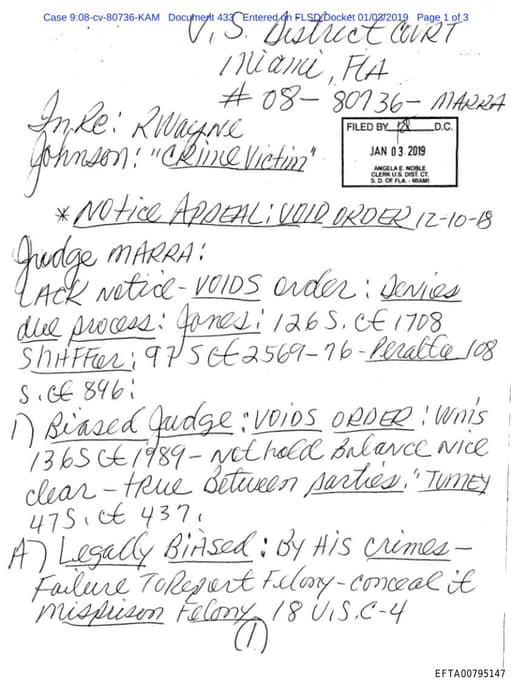 Case 9:08-cv-80736-KAM Document 433 Entered on FLSD Docket 01/03/2019 Page 1 of 3
U.S. District COURT
Miami, FLA
# 08-80736-MARRA
In Re: RWayne
Johnson: "CRime Victim"
FILED BY D.C.
JAN 03 2019
ANGELA E. NOBLE
CLERK U.S. DIST. CT.
S. D. OF FLA. - MIAMI
* NOtice APPEAL: VOID ORDER 12-10-18
Judge MARRA:
LACK Notice - VOIDS order: Denies
due process: Jones: 126 S. Ct 1708
SHAFFer; 97 S Ct 2569-76 - Peralta 108
S. Ct 896:
1) Biased Judge: VOIDS ORDER: Wms
136 S Ct 1989 - Not hold Balance Nice
clear - tRue Between parties." TUMEY
47 S. Ct 437.
A) Legally BiAsed: By His crimes -
Failure To Report Felony - conceal it
Misprison Felony 18 U.S.C-4
(1)
EFTA00795147